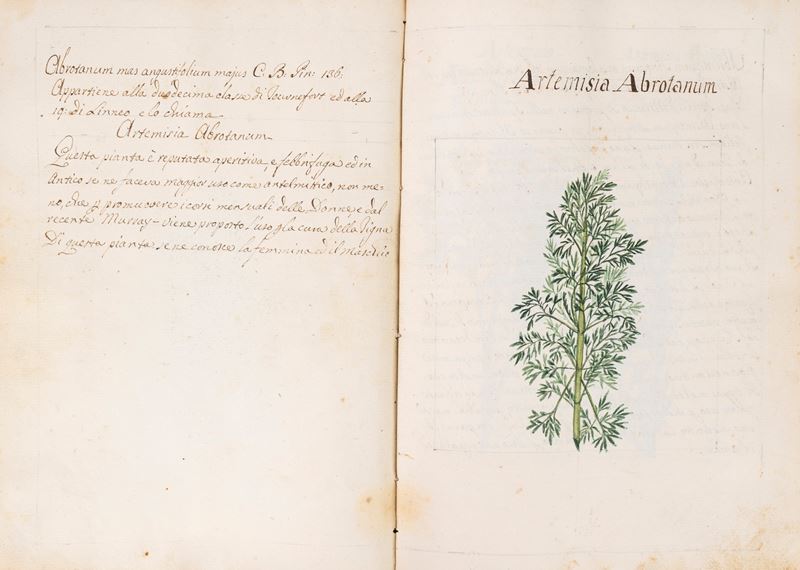 Abrotanum mas angustifolium majus C. B. Pin: 136:
Appartiene alla duodecima classe di Tournefort ed alla
19: di Linneo e lo chiama
Artemisia Abrotanum
Questa pianta è reputata aperitiva, e febbrifuga ed in
antico se ne faceva maggior uso come antelmitico, non me-
no, che p promuovere i corsi mensuali delle Donne e dal
recente Murray viene proposto l'uso p la cura della Tigna
Di questa pianta se ne conosce la femmina ed il maschio
Artemisia Abrotanum